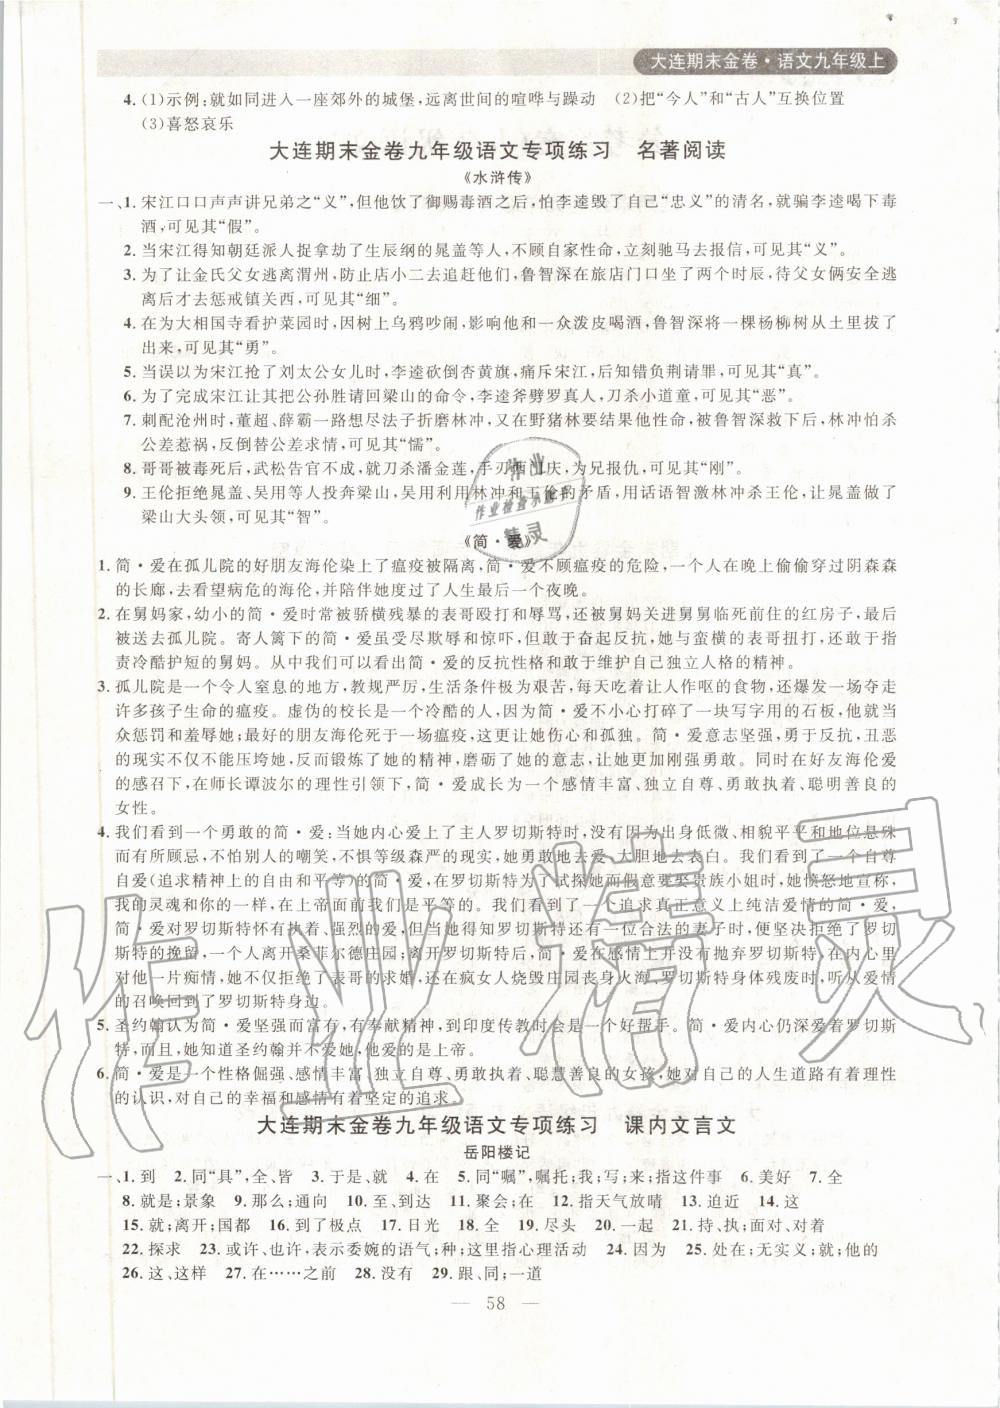 大连期末金卷·语文九年级上
4. (1)示例:就如同进入一座郊外的城堡,远离世间的喧哗与躁动 (2)把“今人”和“古人”互换位置
(3)喜怒哀乐
大连期末金卷九年级语文专项练习 名著阅读
《水浒传》
一、1. 宋江口口声声讲兄弟之“义”,但他饮了御赐毒酒之后,怕李逵毁了自己“忠义”的清名,就骗李逵喝下毒
酒,可见其“假”。
2. 当宋江得知朝廷派人捉拿劫了生辰纲的晁盖等人,不顾自家性命,立刻驰马去报信,可见其“义”。
3. 为了让金氏父女逃离渭州,防止店小二去追赶他们,鲁智深在旅店门口坐了两个时辰,待父女俩安全逃
离后才去惩戒镇关西,可见其“细”。
4. 在为大相国寺看护菜园时,因树上乌鸦吵闹,影响他和一众泼皮喝酒,鲁智深将一棵杨柳树从土里拔了
出来,可见其“勇”。
5. 当误以为宋江抢了刘太公女儿时,李逵砍倒杏黄旗,痛斥宋江,后知错负荆请罪,可见其“真”。
6. 为了完成宋江让其把公孙胜请回梁山的命令,李逵斧劈罗真人,刀杀小道童,可见其“恶”。
7. 刺配沧州时,董超、薛霸一路想尽法子折磨林冲,又在野猪林要结果他性命,被鲁智深救下后,林冲怕杀
公差惹祸,反倒替公差求情,可见其“懦”。
8. 哥哥被毒死后,武松告官不成,就刀杀潘金莲,手刃西门庆,为兄报仇,可见其“刚”。
9. 王伦拒绝晁盖、吴用等人投奔梁山,吴用利用林冲和王伦的矛盾,用话语智激林冲杀王伦,让晁盖做了
梁山大头领,可见其“智”。
《简·爱》
1. 简·爱在孤儿院的好朋友海伦染上了瘟疫被隔离,简·爱不顾瘟疫的危险,一个人在晚上偷偷穿过阴森森
的长廊,去看望病危的海伦,并陪伴她度过了人生最后一个夜晚。
2. 在舅妈家,幼小的简·爱时常被骄横残暴的表哥殴打和辱骂,还被舅妈关进舅舅临死前住的红房子,最后
被送去孤儿院。寄人篱下的简·爱虽受尽欺辱和惊吓,但敢于奋起反抗,她与蛮横的表哥扭打,还敢于指
责冷酷护短的舅妈。从中我们可以看出简·爱的反抗性格和敢于维护自己独立人格的精神。
3. 孤儿院是一个令人窒息的地方,教规严厉,生活条件极为艰苦,每天吃着让人作呕的食物,还遇到一场夺走
许多孩子生命的瘟疫。虚伪的校长是一个冷酷的人,因简·爱不小心打碎了一块写字用的石板,他就当
众惩罚和羞辱她;最好的朋友海伦死于一场瘟疫,这使她伤心和孤独。简·爱坚强、勇于反抗,丑恶
的现实不仅不能压垮她,反而锻炼了她的精神,磨砺了她的意志,让她更加刚强勇敢。在好友海伦爱
的感召下,在师长谭波尔的理性引领下,简·爱成长为一个感情丰富、独立自尊、勇敢执着、聪明善良的
女性。
4. 我们看到一个勇敢的简·爱:当她内心爱上了主人罗切斯特时,没有因为出身低微、相貌平平和地位悬殊
而有所顾忌,不怕别人的嘲笑,不惧等级森严的现实,她勇敢地去爱,大胆地去表白。我们看到一个自尊
自爱(追求精神上的自由和平等)的简·爱,在罗切斯特为了试探她而假意要娶贵族小姐时,她愤怒地宣称,
我的灵魂和你的一样,在上帝面前我们是平等的。我们看到了一个追求真正意义上纯洁爱情的简·爱,
简·爱对罗切斯特怀有执着、强烈的爱,但当她得知罗切斯特还有一位合法的妻子时,便坚决拒绝了罗切
斯特的挽留,一个人离开桑菲尔德庄园;离开罗切斯特后,简·爱在感情上仍没有抛弃罗切斯特,不忘他
对他一片痴情,她不仅拒绝了表哥的求婚,还在疯女人烧毁庄园丧身火海、罗切斯特身体残废时,听从爱情
的召唤回到了罗切斯特身边。
5. 圣约翰认为简·爱坚强而富有,有奉献精神,到印度传教时会是一个好帮手。简·爱内心仍深爱着罗切斯
特,而且,她知道圣约翰并不爱她,他爱的是上帝。
6. 简·爱是一个性格倔强、感情丰富、独立自尊、勇敢执着、聪慧善良的女性,她对自己的人生道路有着理性
的认识,对幸福和感情有着坚定的追求。
大连期末金卷九年级语文专项练习 课内文言文
岳阳楼记
一、1. 到 2. 同“具”,全、皆 3. 于是、就 4. 在 5. 同“嘱”,嘱托;我;写;来;指这件事 6. 美好 7. 全
8. 就是;景象 9. 那么;通向 10. 至、到达 11. 聚会;在 12. 指天气放晴 13. 迫近 14. 这
15. 就;离开;国都 16. 到了极点 17. 日光 18. 全 19. 尽头 20. 一起 21. 持、执;面对、对着
22. 探求 23. 或许、也许,表示委婉的语气;种;这里指心理活动 24. 因为 25. 处在;无实义;就;他的
26. 这、这样 27. 在……之前 28. 没有 29. 跟、同;一道
— 58 —
作业
作业检查小助手
精灵
作业精灵